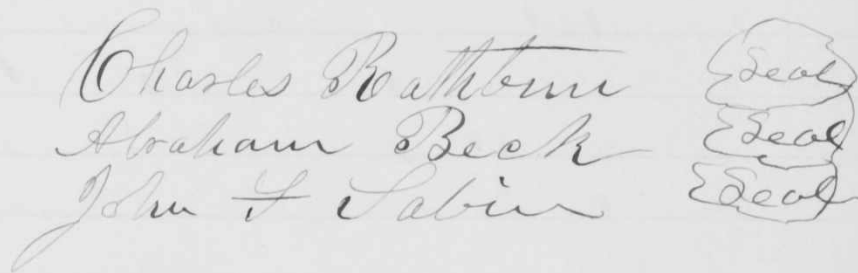 Charles Rathbun Seal
Abraham Beck Seal
John F Sabin Seal